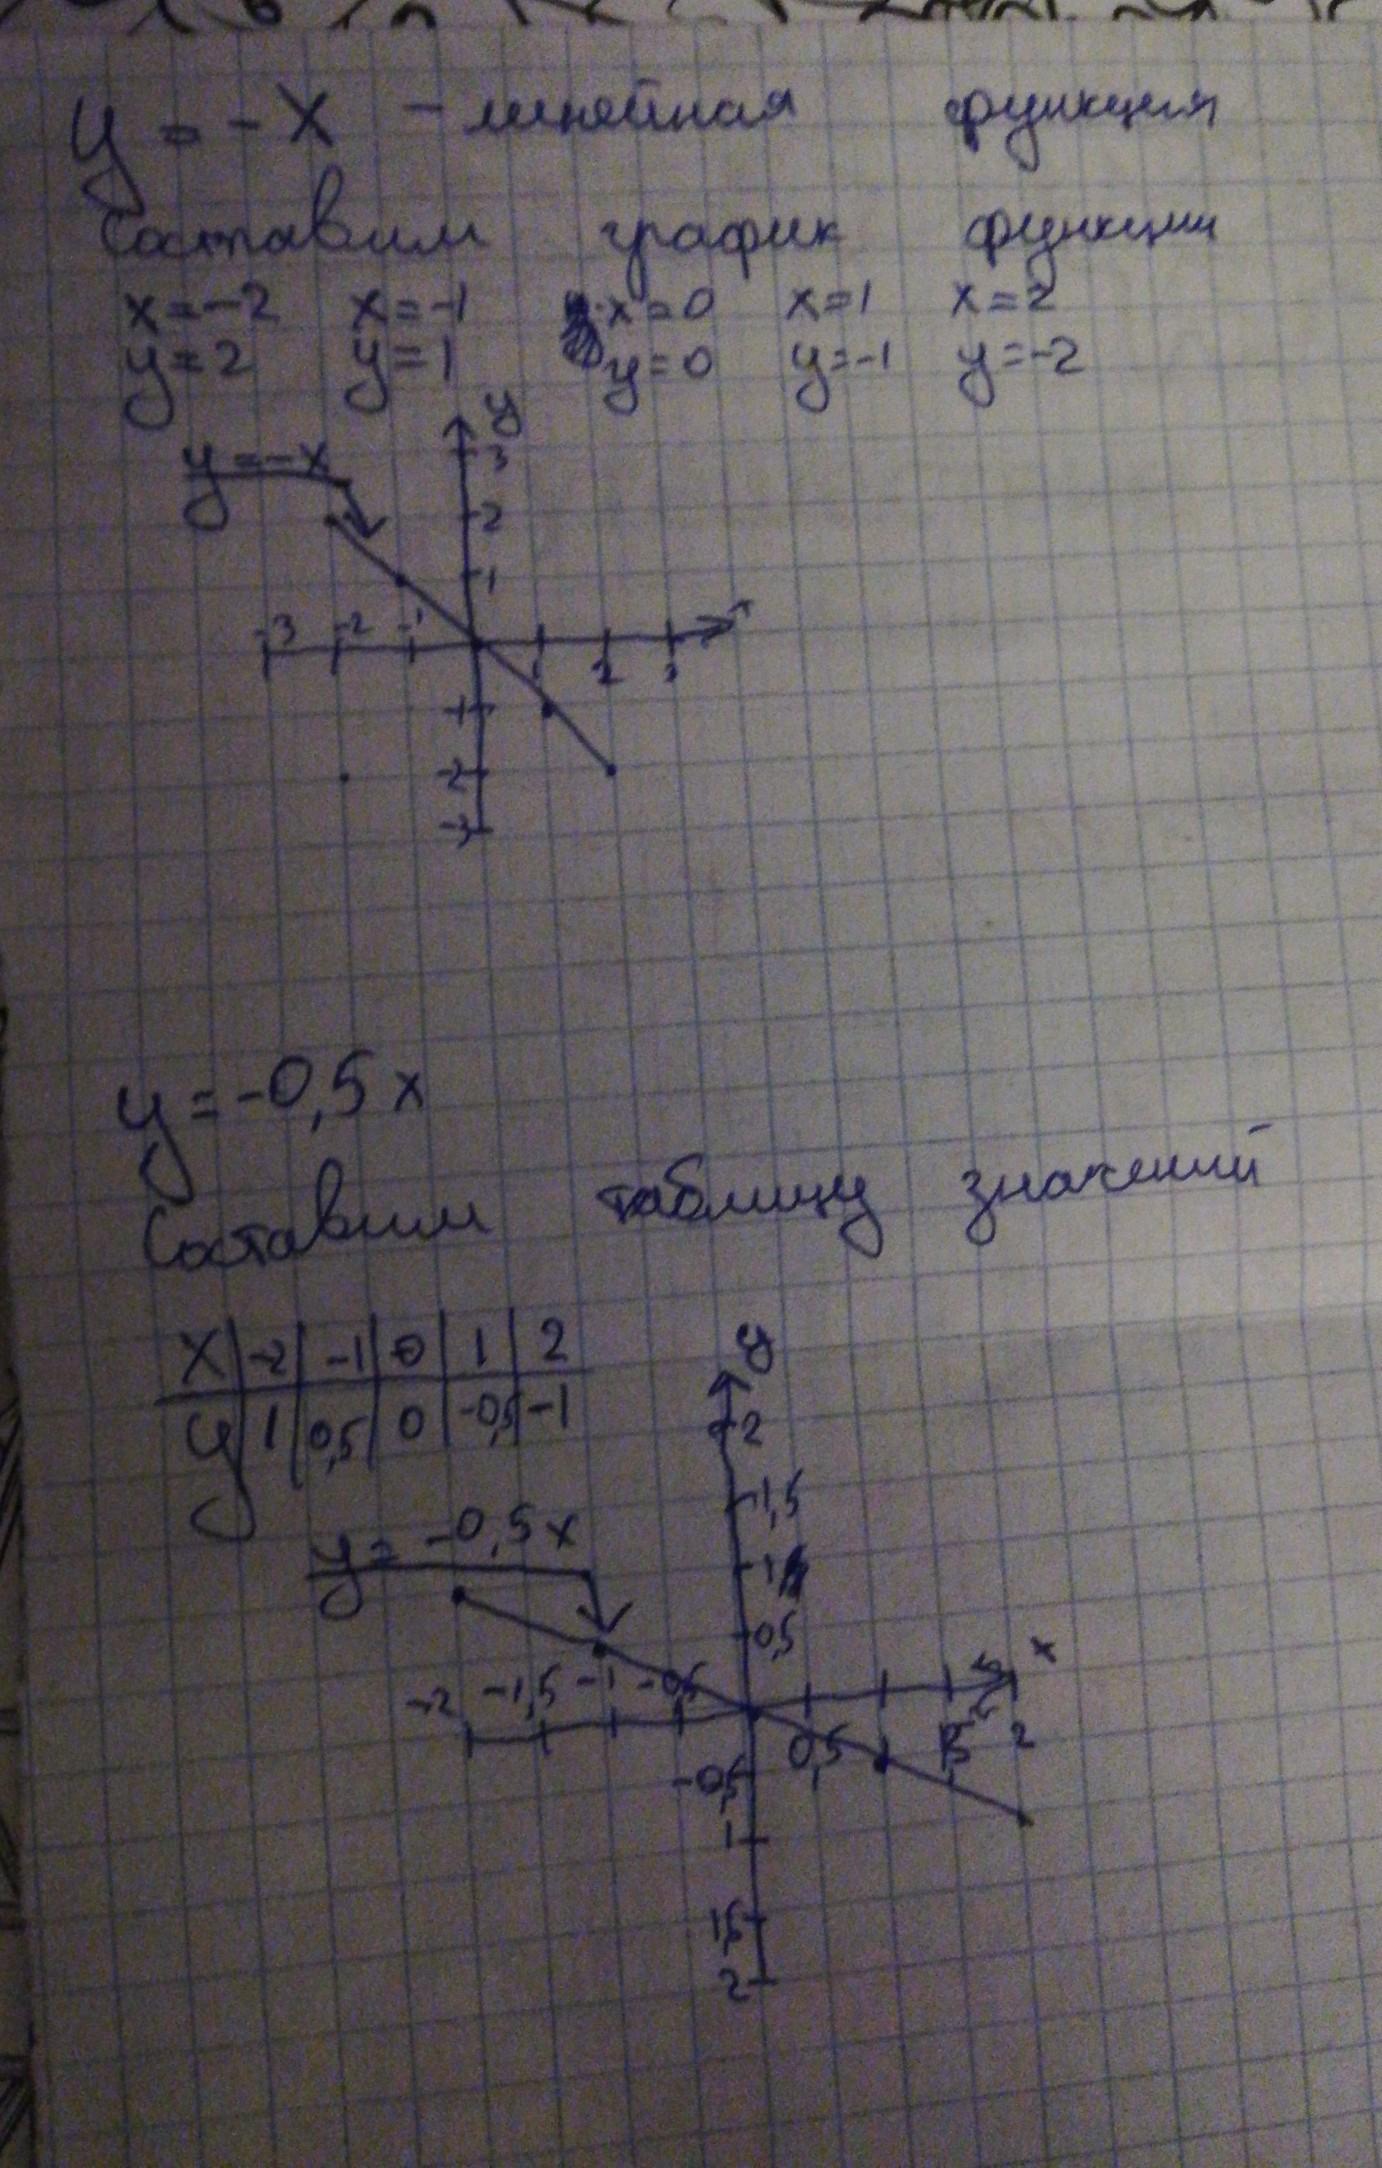 y = - x - линейная функция
Составим график функции
x=-2 x=-1 x=0 x=1 x=2
y=2 y=1 y=0 y=-1 y=-2
y
y=-x
3
2
1
-3 -2 -1
1 2 3
-1
-2
-3
y=-0,5x
Составим таблицу значений
x -2 -1 0 1 2
y 1 0,5 0 -0,5 -1
y
2
1,5
y=-0,5x
1
0,5
x
-2 -1,5 -1 -0,5
0,5 1,5 2
-0,5
1
1,5
2